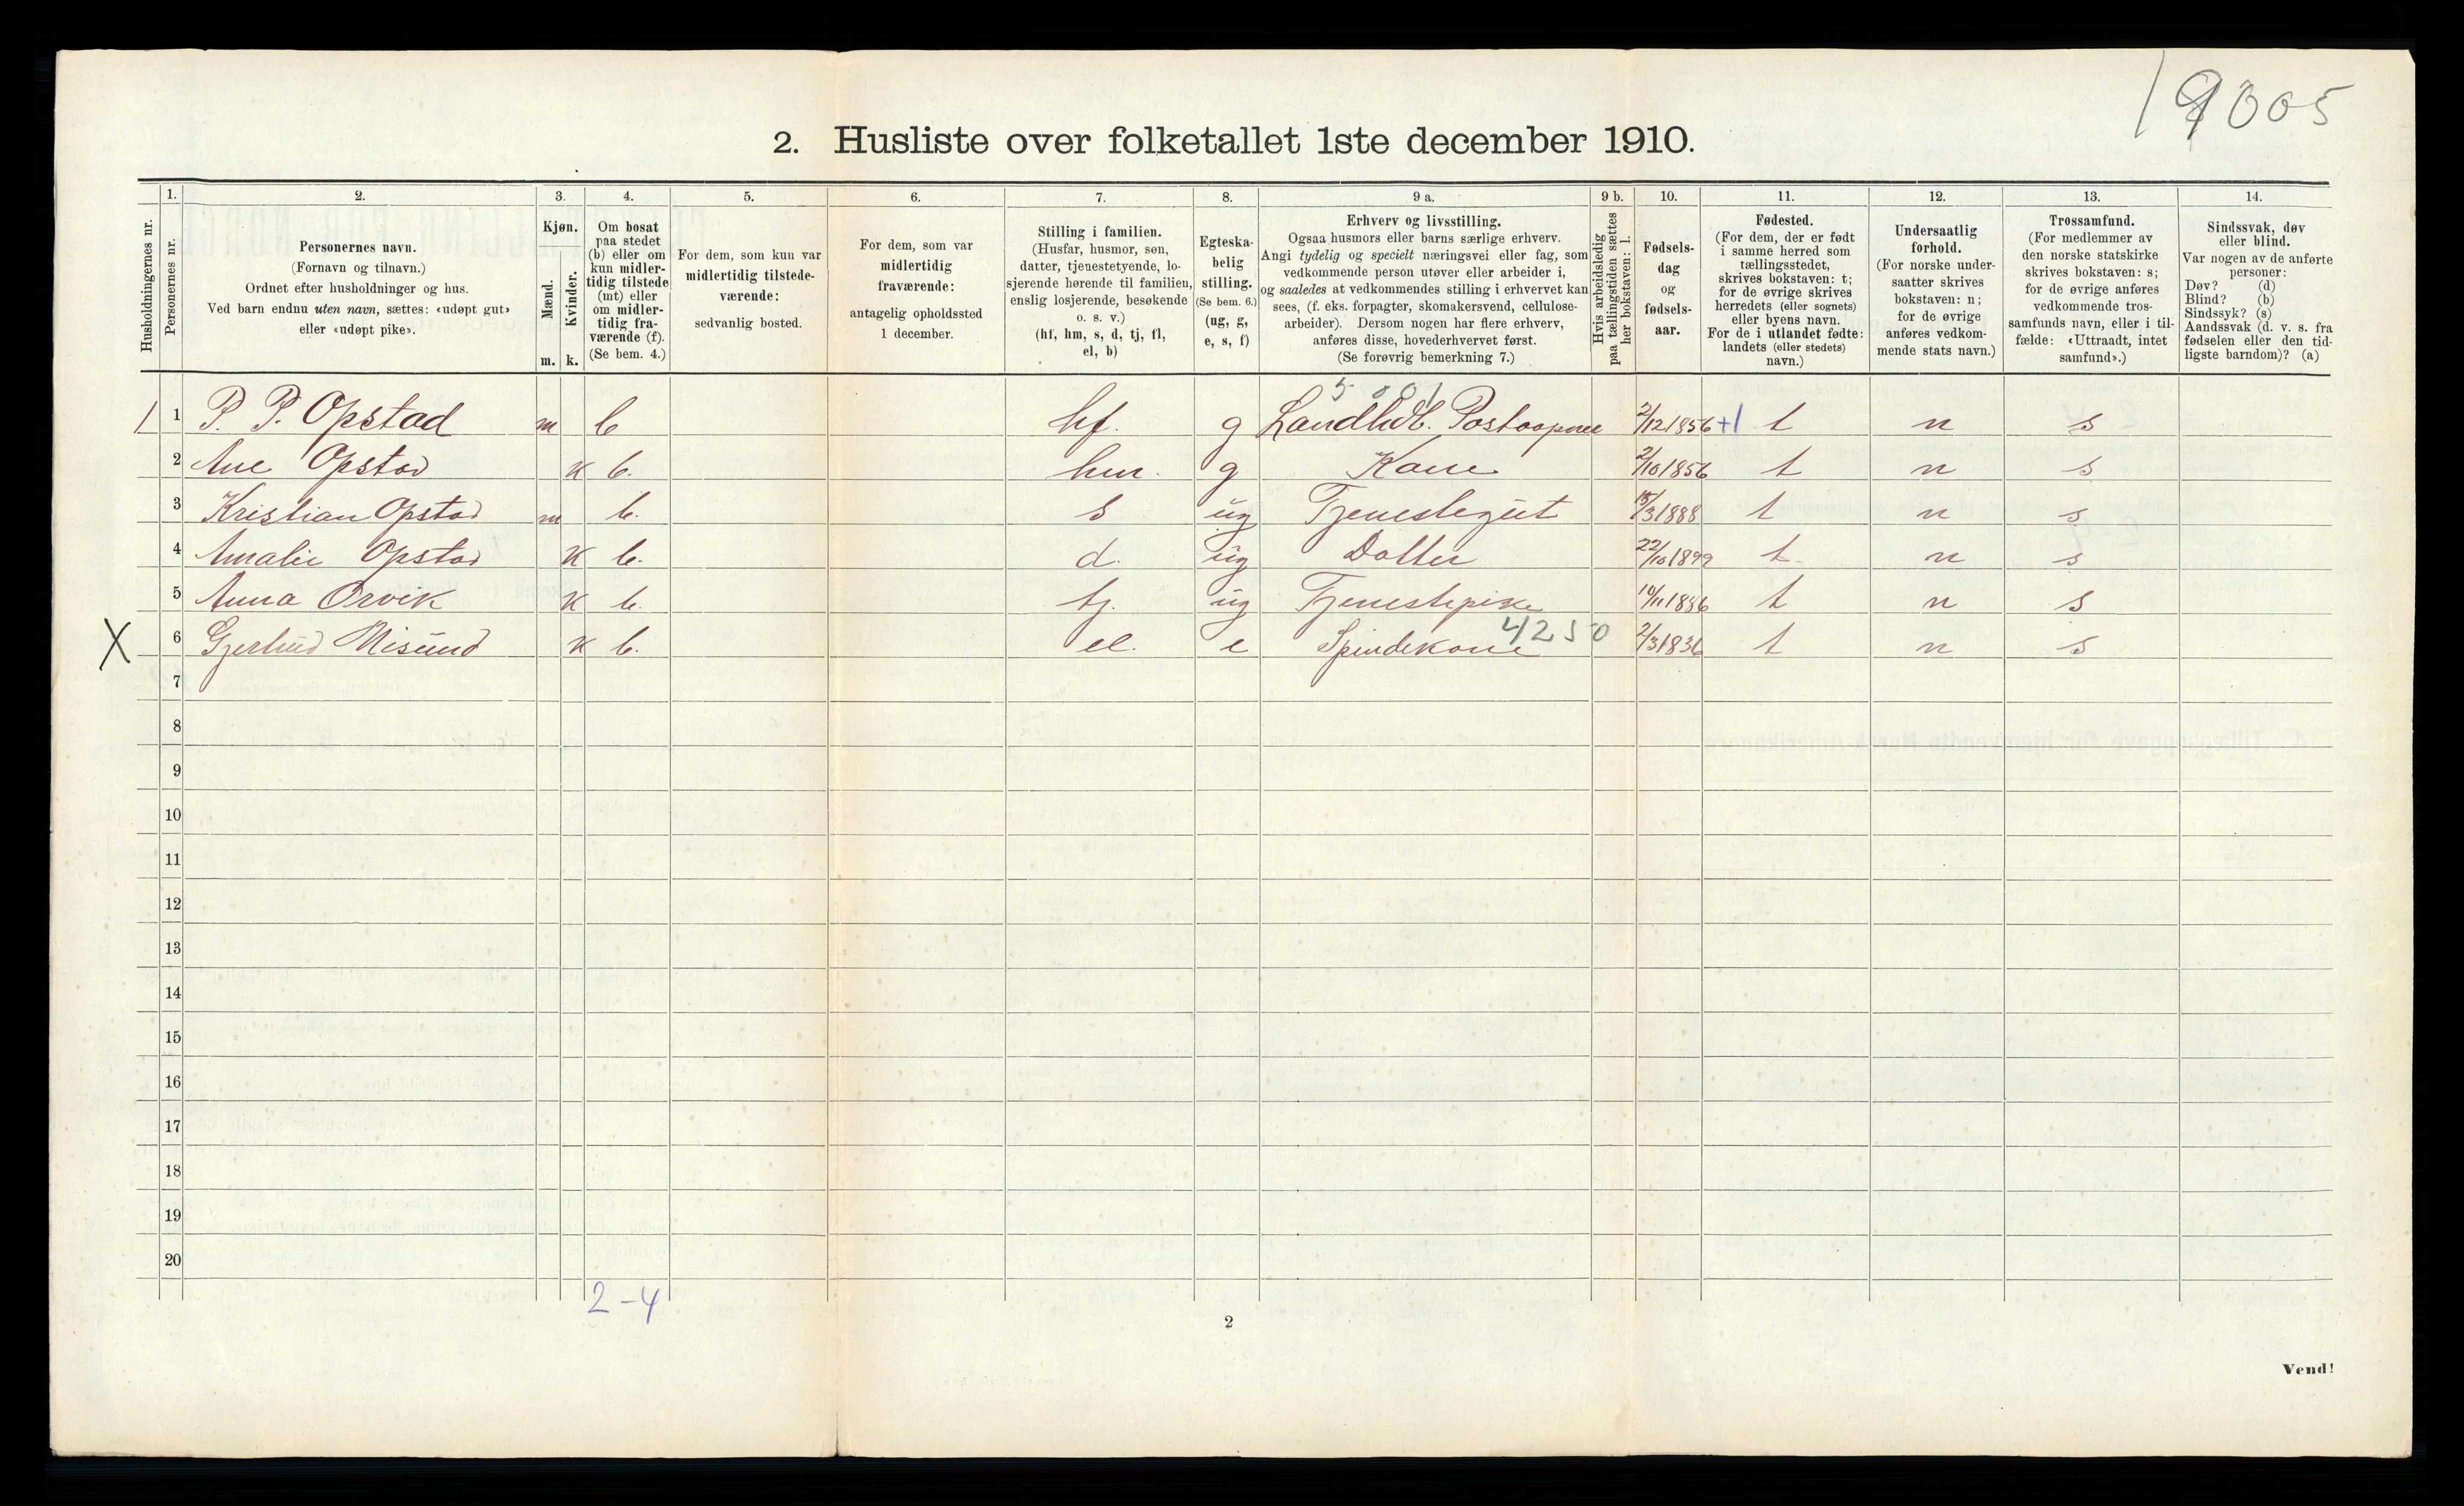 19005
2. Husliste over folketallet 1ste december 1910.
1. 2. 3. 4. 5. 6. 7. 8. 9 a. 9 b. 10. 11. 12. 13. 14.
Husholdningernes nr.
Personernes nr.
Personernes navn.
(Fornavn og tilnavn.)
Ordnet efter husholdninger og hus.
Ved barn endnu uten navn, sættes: «udøpt gut»
eller «udøpt pike».
Kjøn.
Mænd.
Kvinder.
m. k.
Om bosat
paa stedet
(b) eller om
kun midler-
tidig tilstede
(mt) eller
om midler-
tidig fra-
værende (f).
(Se bem. 4.)
For dem, som kun var
midlertidig tilstede-
værende:
sedvanlig bosted.
For dem, som var
midlertidig
fraværende:
antagelig opholdssted
1 december.
Stilling i familien.
(Husfar, husmor, søn,
datter, tjenestetyende, lo-
sjerende hørende til familien,
enslig losjerende, besøkende
o. s. v.)
(hf, hm, s, d, tj, fl,
el, b)
Egteska-
belig
stilling.
(Se bem. 6.)
(ug, g,
e, s, f)
Erhverv og livsstilling.
Ogsaa husmors eller barns særlige erhverv.
Angi tydelig og specielt næringsvei eller fag, som
vedkommende person utøver eller arbeider i,
og saaledes at vedkommendes stilling i erhvervet kan
sees, (f. eks. forpagter, skomakersvend, cellulose-
arbeider). Dersom nogen har flere erhverv,
anføres disse, hovederhvervet først.
(Se forøvrig bemerkning 7.)
Hvis arbeidsledig
paa tællingstiden sættes
her bokstaven: l.
Fødsels-
dag
og
fødsels-
aar.
Fødested.
(For dem, der er født
i samme herred som
tællingsstedet,
skrives bokstaven: t;
for de øvrige skrives
herredets (eller sognets)
eller byens navn.
For de i utlandet fødte:
landets (eller stedets)
navn.)
Undersaatlig
forhold.
(For norske under-
saatter skrives
bokstaven: n;
for de øvrige
anføres vedkom-
mende stats navn.)
Trossamfund.
(For medlemmer av
den norske statskirke
skrives bokstaven: s;
for de øvrige anføres
vedkommende tros-
samfunds navn, eller i til-
fælde: «Uttraadt, intet
samfund».)
Sindssvak, døv
eller blind.
Var nogen av de anførte
personer:
Døv? (d)
Blind? (b)
Sindssyk? (s)
Aandssvak (d. v. s. fra
fødselen eller den tid-
ligste barndom)? (a)
1 1 P. P. Opstad m b hf. g Landhdl. Postaapner 2/12 1856 +1 t n s
2 Ane Opstad k b. hm. g Kone 2/10 1856 t n s
3 Kristian Opstad m b. s ug Tjenestegut 15/3 1888 t n s
4 Amalie Opstad k b. d. ug Datter 22/10 1899 t n s
5 Anna Orvik k b. tj. ug Tjenestepike 10/11 1886 t n s
4250
X 6 Gjertrud Misund k b. el. e Spindekone 2/3 1836 t n s
7
8
9
10
11
12
13
14
15
16
17
18
19
20
2-4
2
Vend!